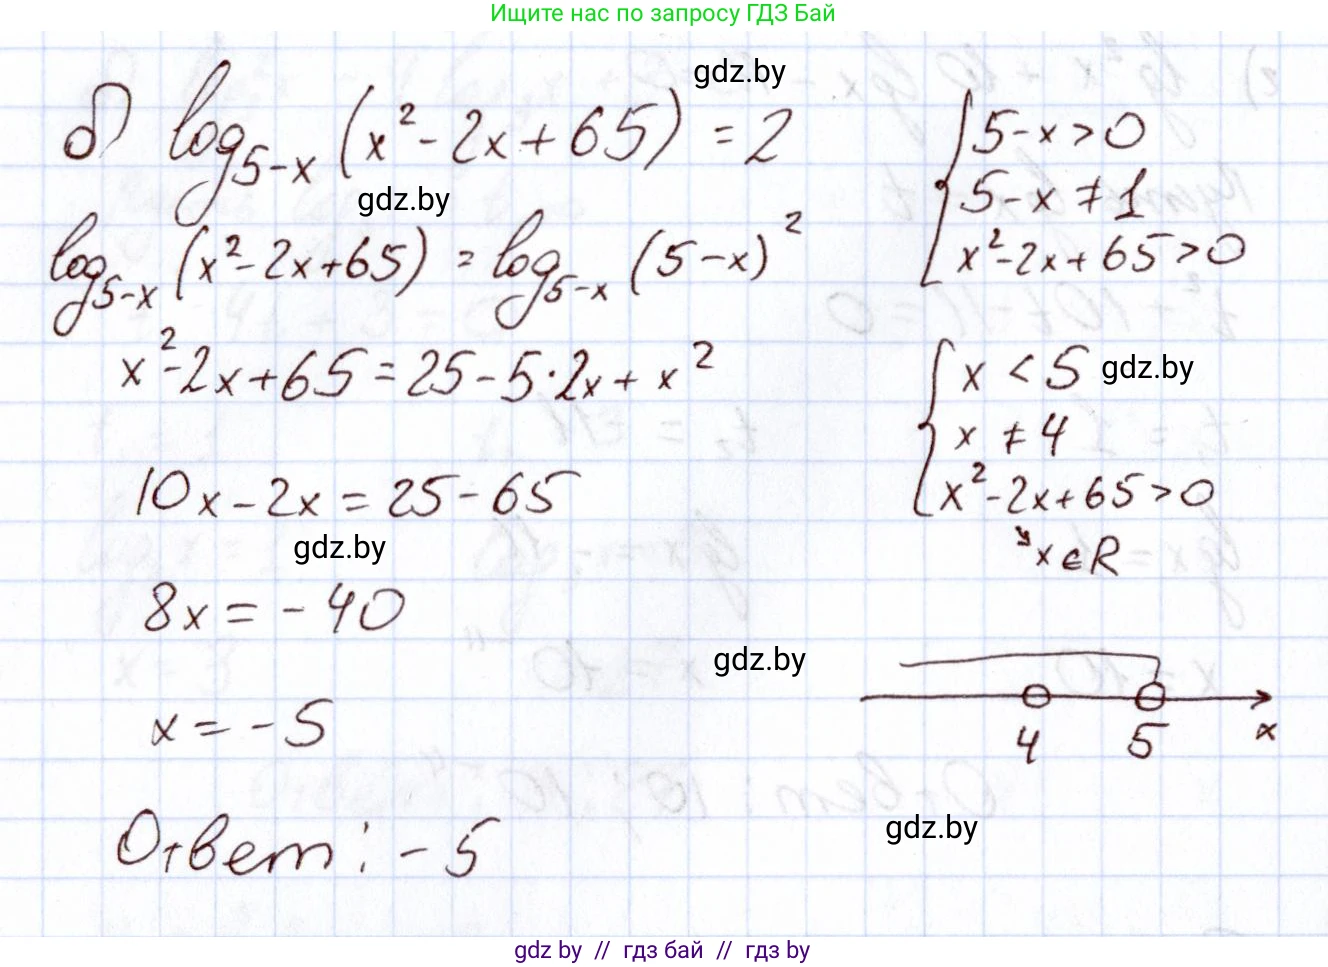 Ищите нас по запросу ГДЗ Бай
gdz.by
б) log₅₋ₓ (x² - 2x + 65) = 2
gdz.by
log₅₋ₓ (x² - 2x + 65) = log₅₋ₓ (5 - x)²
x² - 2x + 65 = 25 - 5·2x + x²
10x - 2x = 25 - 65
gdz.by
8x = - 40
x = - 5
Ответ: - 5
5 - x > 0
5 - x ≠ 1
x² - 2x + 65 > 0
x < 5
gdz.by
x ≠ 4
x² - 2x + 65 > 0
x ∈ R
gdz.by
4 5 x
gdz.by
gdz by // гдз бай // гдз by